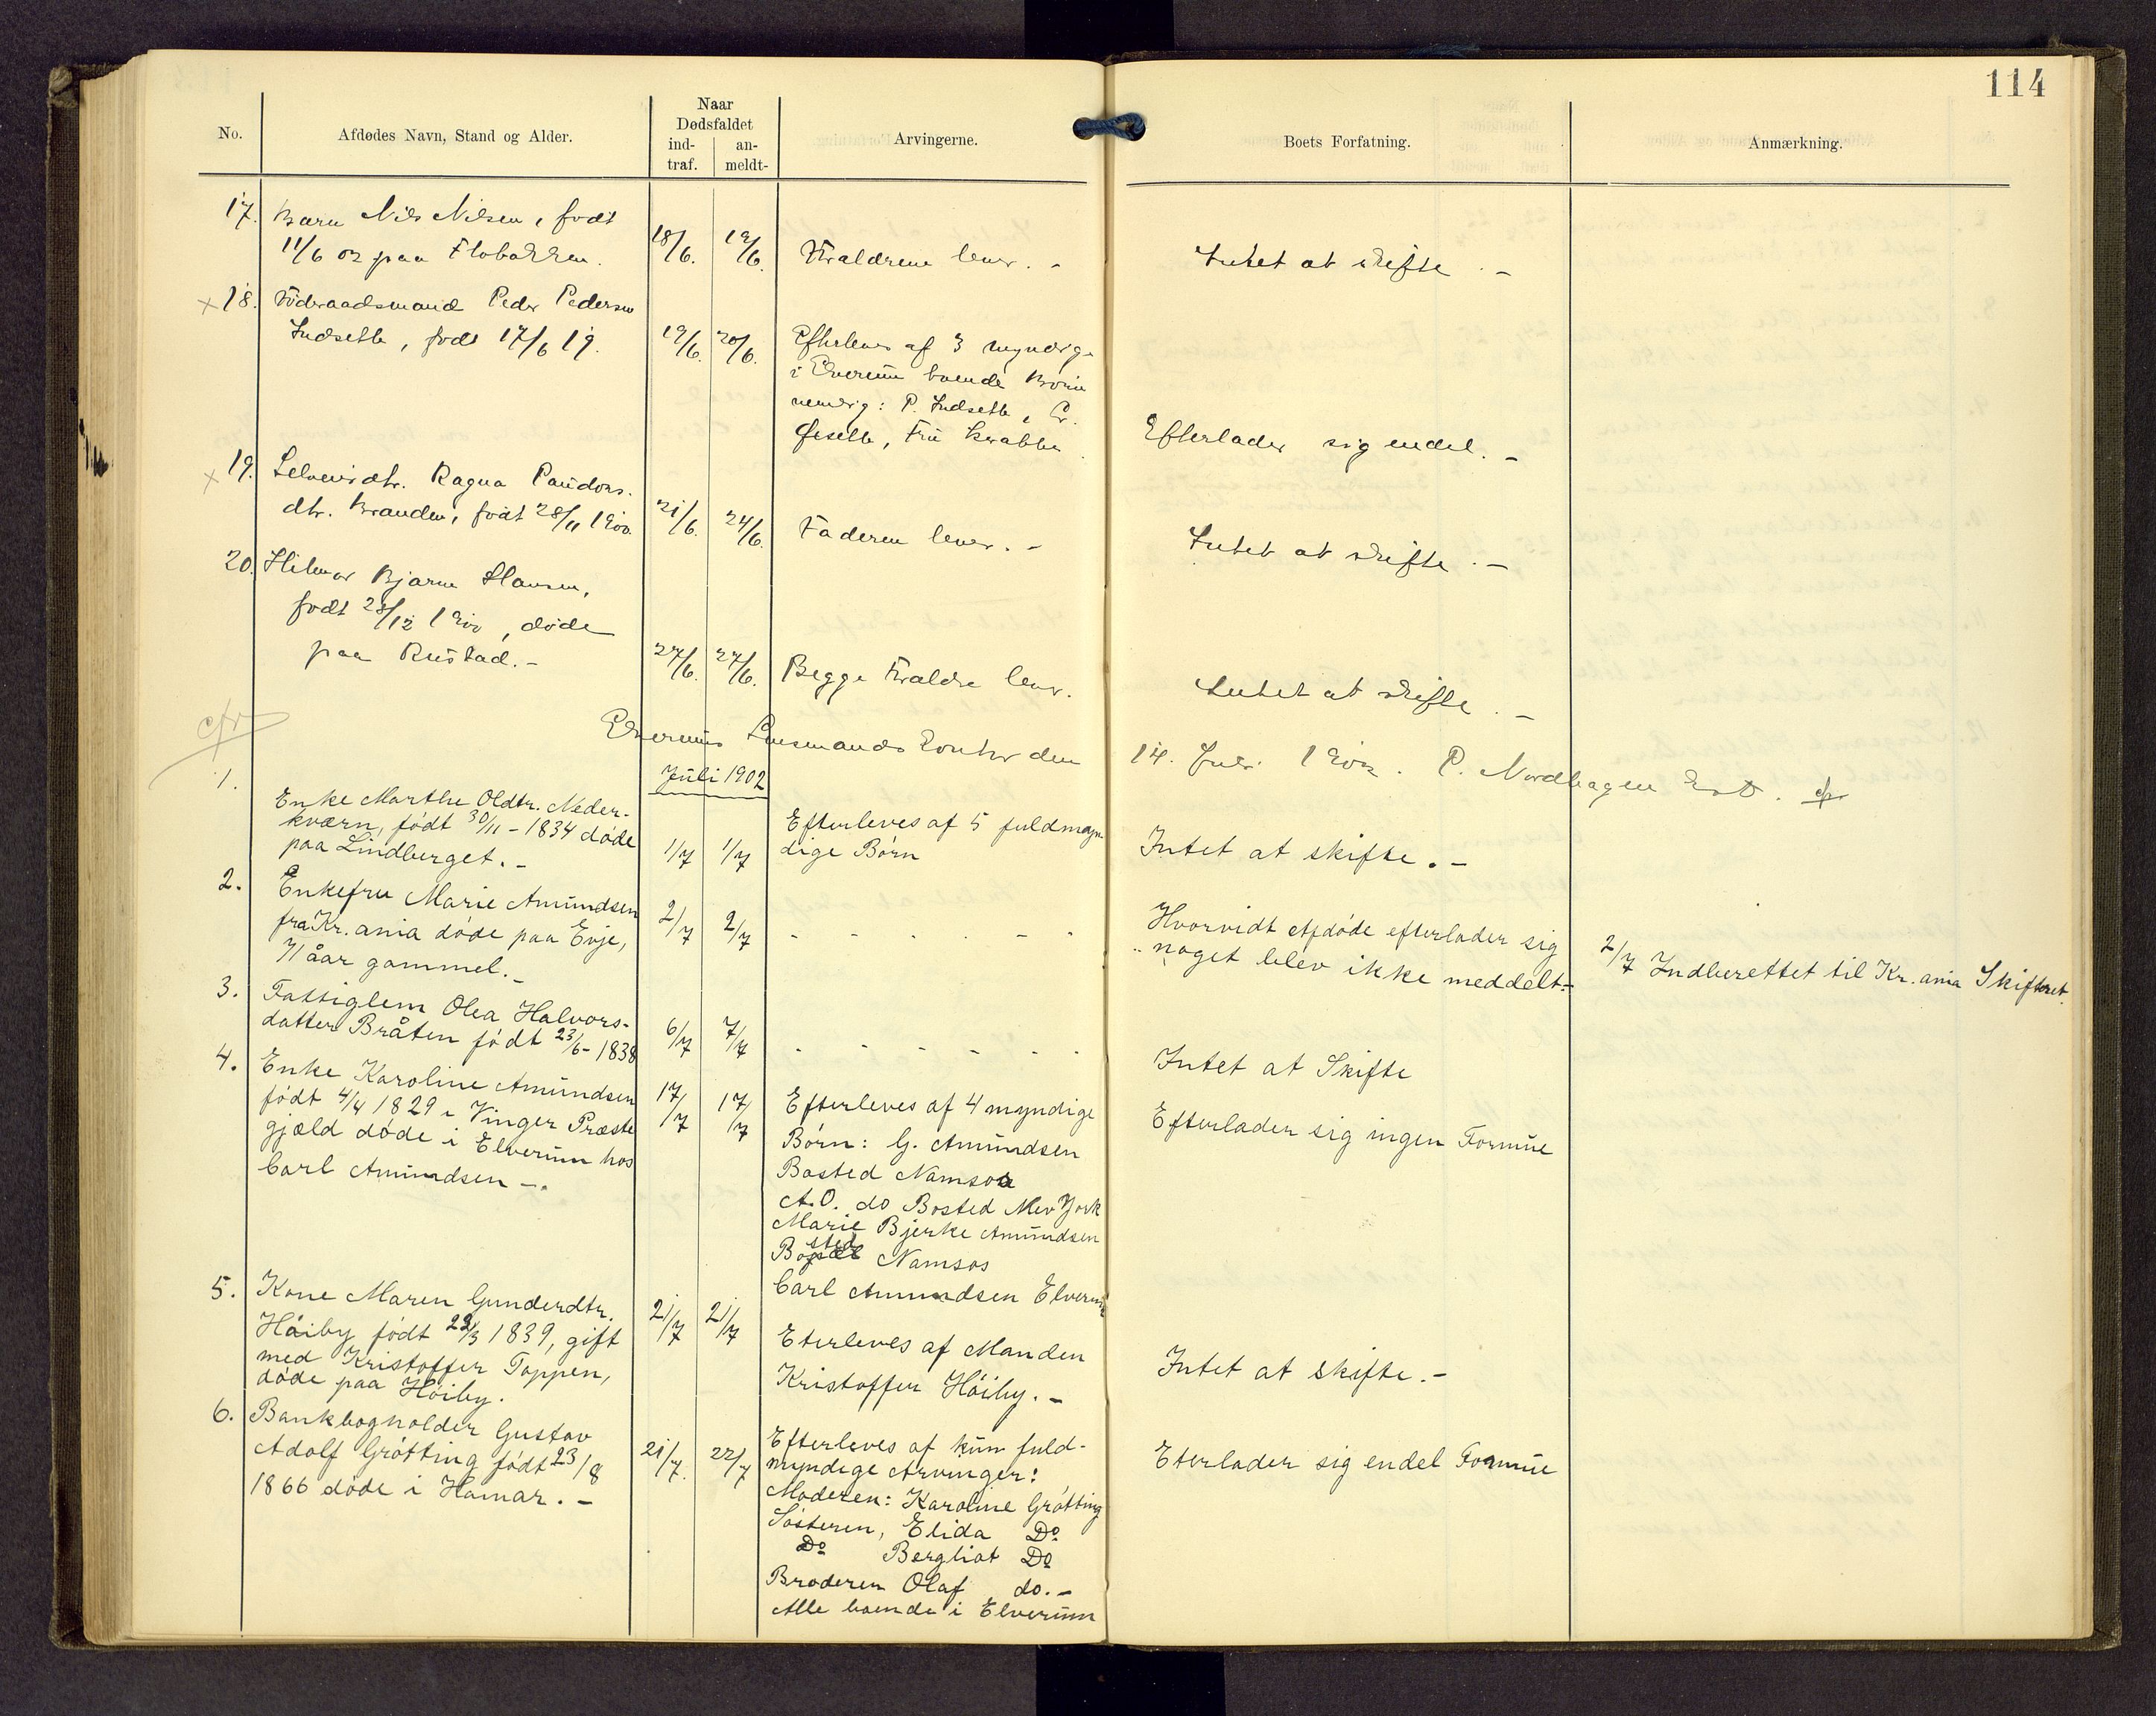 114
No.
Afdødes Navn, Stand og Alder.
Naar
Dødsfaldet
ind-
traf.
an-
meldt-
Arvingerne.
Boets Forfatning.
Anmærkning.
17. Barn Nils Nilsen, født
11/6 02 paa 18/6. 19/6. Forældrene lever. - Intet at skifte. -
18. Føderaadsmand Peder Pedersen
Indsette, født 17/6 19. 19/6. 20/6. Efterleves af 3 myndige
i Elverum boende Børn
nemlig: P. Indsette,
Fru Krabbe
Efterlader sig endel. -
19. Selveierdtr. Ragna
dtr. Branden, født 28/11 21/6. 24/6. Faderen lever. - Intet at skifte. -
20. Hilmar Bjarne Hansen,
født 28/12, døde
paa Rustad. - 27/6. 27/6. Begge Forældre lever. Intet at skifte. -
cfr
Elverums Lensmandskontor den 14. Juli 1902. P. Nordhagen Kst. cfr
Juli 1902
1. Enke Marthe Oldtr. Neder-
kværn, født 30/11 - 1834 døde
paa Lindberget. - 1/7 1/7 Efterleves af 5 fuldmyn
dige Børn Intet at skifte. -
2. Enkefru Marie Amundsen
fra Kr.ania døde paa Evje,
71 åar gammel. - 2/7 2/7 - - - - - - Hvorvidt Afdøde efterlader sig
noget blev ikke meddelt - 2/7 Indberettet til Kr.ania Skifteret.
3. Fattiglem Olea Halvors-
datter Bråten født 23/6 - 1838 6/7 7/7 - - - - - - Intet at Skifte
4. Enke Karoline Amundsen
født 4/4 1829 i Vinger Præste
gjæld døde i Elverum hos
Carl Amundsen -. 17/7 17/7 Efterleves af 4 myndige
Børn: G. Amundsen
Bosted Namsos
A.O. do Bosted New York
Marie Bjerke Amundsen
Bosted Namsos
Carl Amundsen Elverum
Efterlader sig ingen Formue
5. Kone Maren Gunderdtr.
Høiby født 22/3 1839, gift
med Kristoffer Toppen,
døde paa Høiby. 21/7 21/7 Eterleves af Manden
Kristoffer Høiby. - Intet at skifte. -
6. Bankbogholder Gustav
Adolf Grøtting født 23/8
1866 døde i Hamar. - 21/7. 22/7 Efterleves af kun fuld-
myndige Arvinger:
Moderen: Karoline Grøtting
Søsteren, Elida Do
Do Bergliot Do
Broderen Olaf do. -
Alle boende i Elverum
Eterlader sig endel Formue